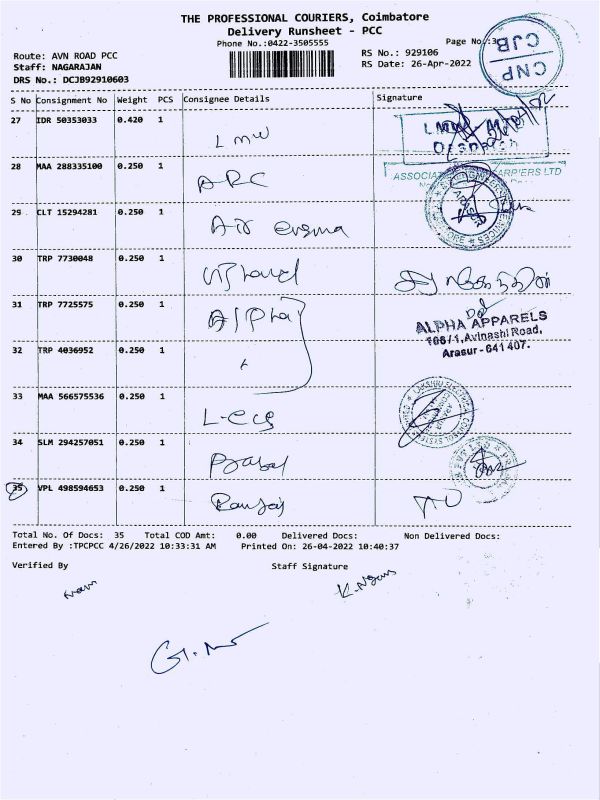 THE PROFESSIONAL COURIERS, Coimbatore
Delivery Runsheet - PCC
Phone No.:0422-3505555
Page No.:3
CNP
CJB
Route: AVN ROAD PCC
Staff: NAGARAJAN
DRS No.: DCJB92910603
RS No.: 929106
RS Date: 26-Apr-2022
S No Consignment No Weight PCS Consignee Details Signature
27 IDR 50353033 0.420 1
L MW
28 MAA 288335100 0.250 1
ARC
ASSOCIAT ARRIERS LTD
29 CLT 15294281 0.250 1
30 TRP 7730048 0.250 1
31 TRP 7725575 0.250 1
Alpha
ALPHA APPARELS
106/1, Avinashi Road,
Arasur - 641 407.
32 TRP 4036952 0.250 1
33 MAA 566575536 0.250 1
L-ecs
LAKSHMI ELECTRICAL CONTROL SYSTEMS
34 SLM 294257051 0.250 1
35 VPL 498594653 0.250 1
Total No. Of Docs: 35 Total COD Amt: 0.00 Delivered Docs: Non Delivered Docs:
Entered By :TPCPCC 4/26/2022 10:33:31 AM Printed On: 26-04-2022 10:40:37
Verified By Staff Signature